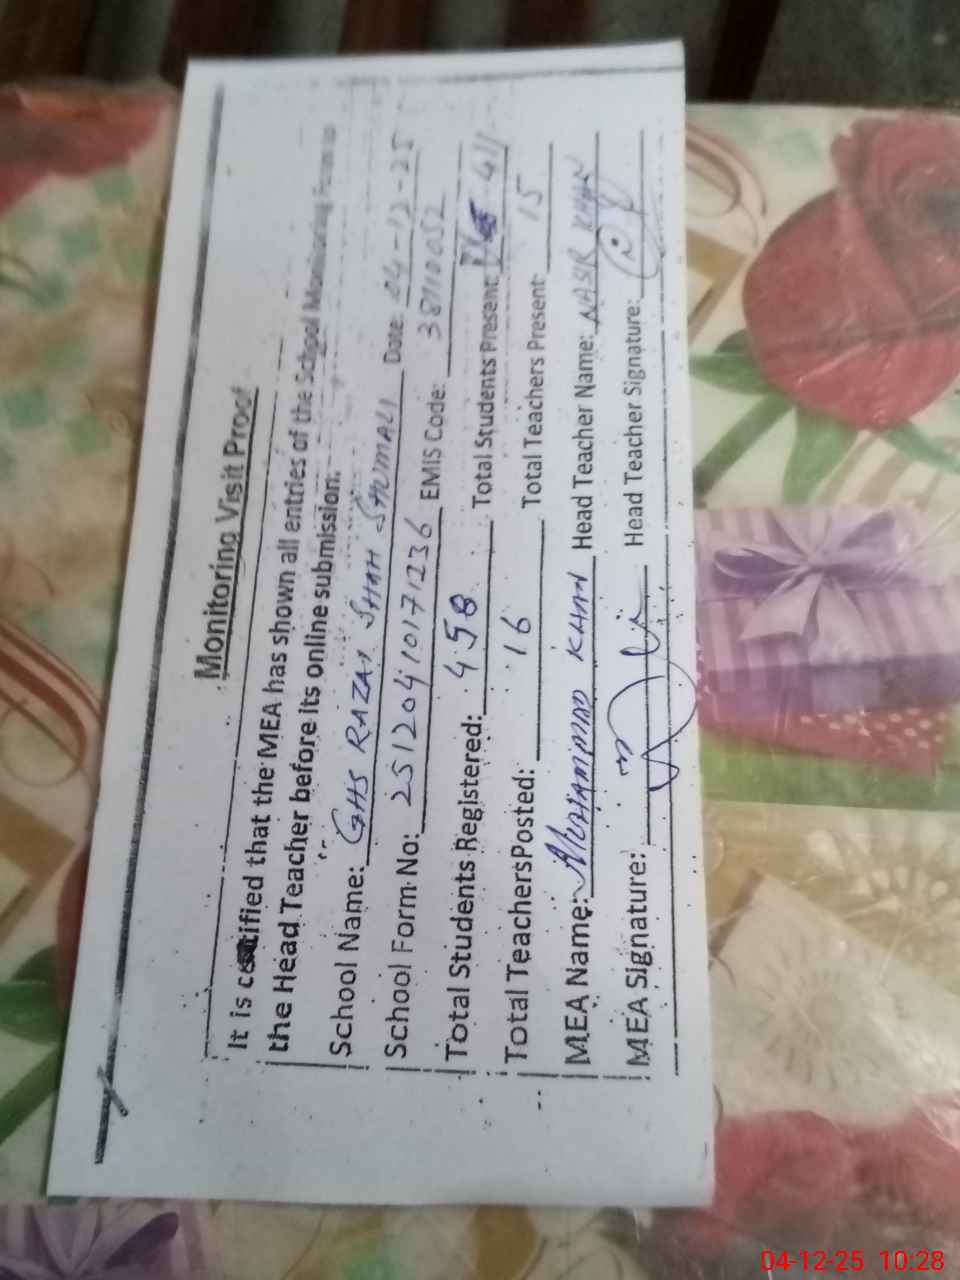 Monitoring Visit Proof
It is certified that the MEA has shown all entries of the School Monitoring Form to
the Head Teacher before its online submission.
School Name: GHS RAZAI SHAH SHUMALI Date: 04-12-25
School Form No: 25120410171236 EMIS Code: 38110052
Total Students Registered: 458 Total Students Present: 411
Total Teachers Posted: 16 Total Teachers Present: 15
MEA Name: MUHAMMAD KHAN Head Teacher Name: NASIR KHAN
MEA Signature: Head Teacher Signature:
04-12-25 10:28